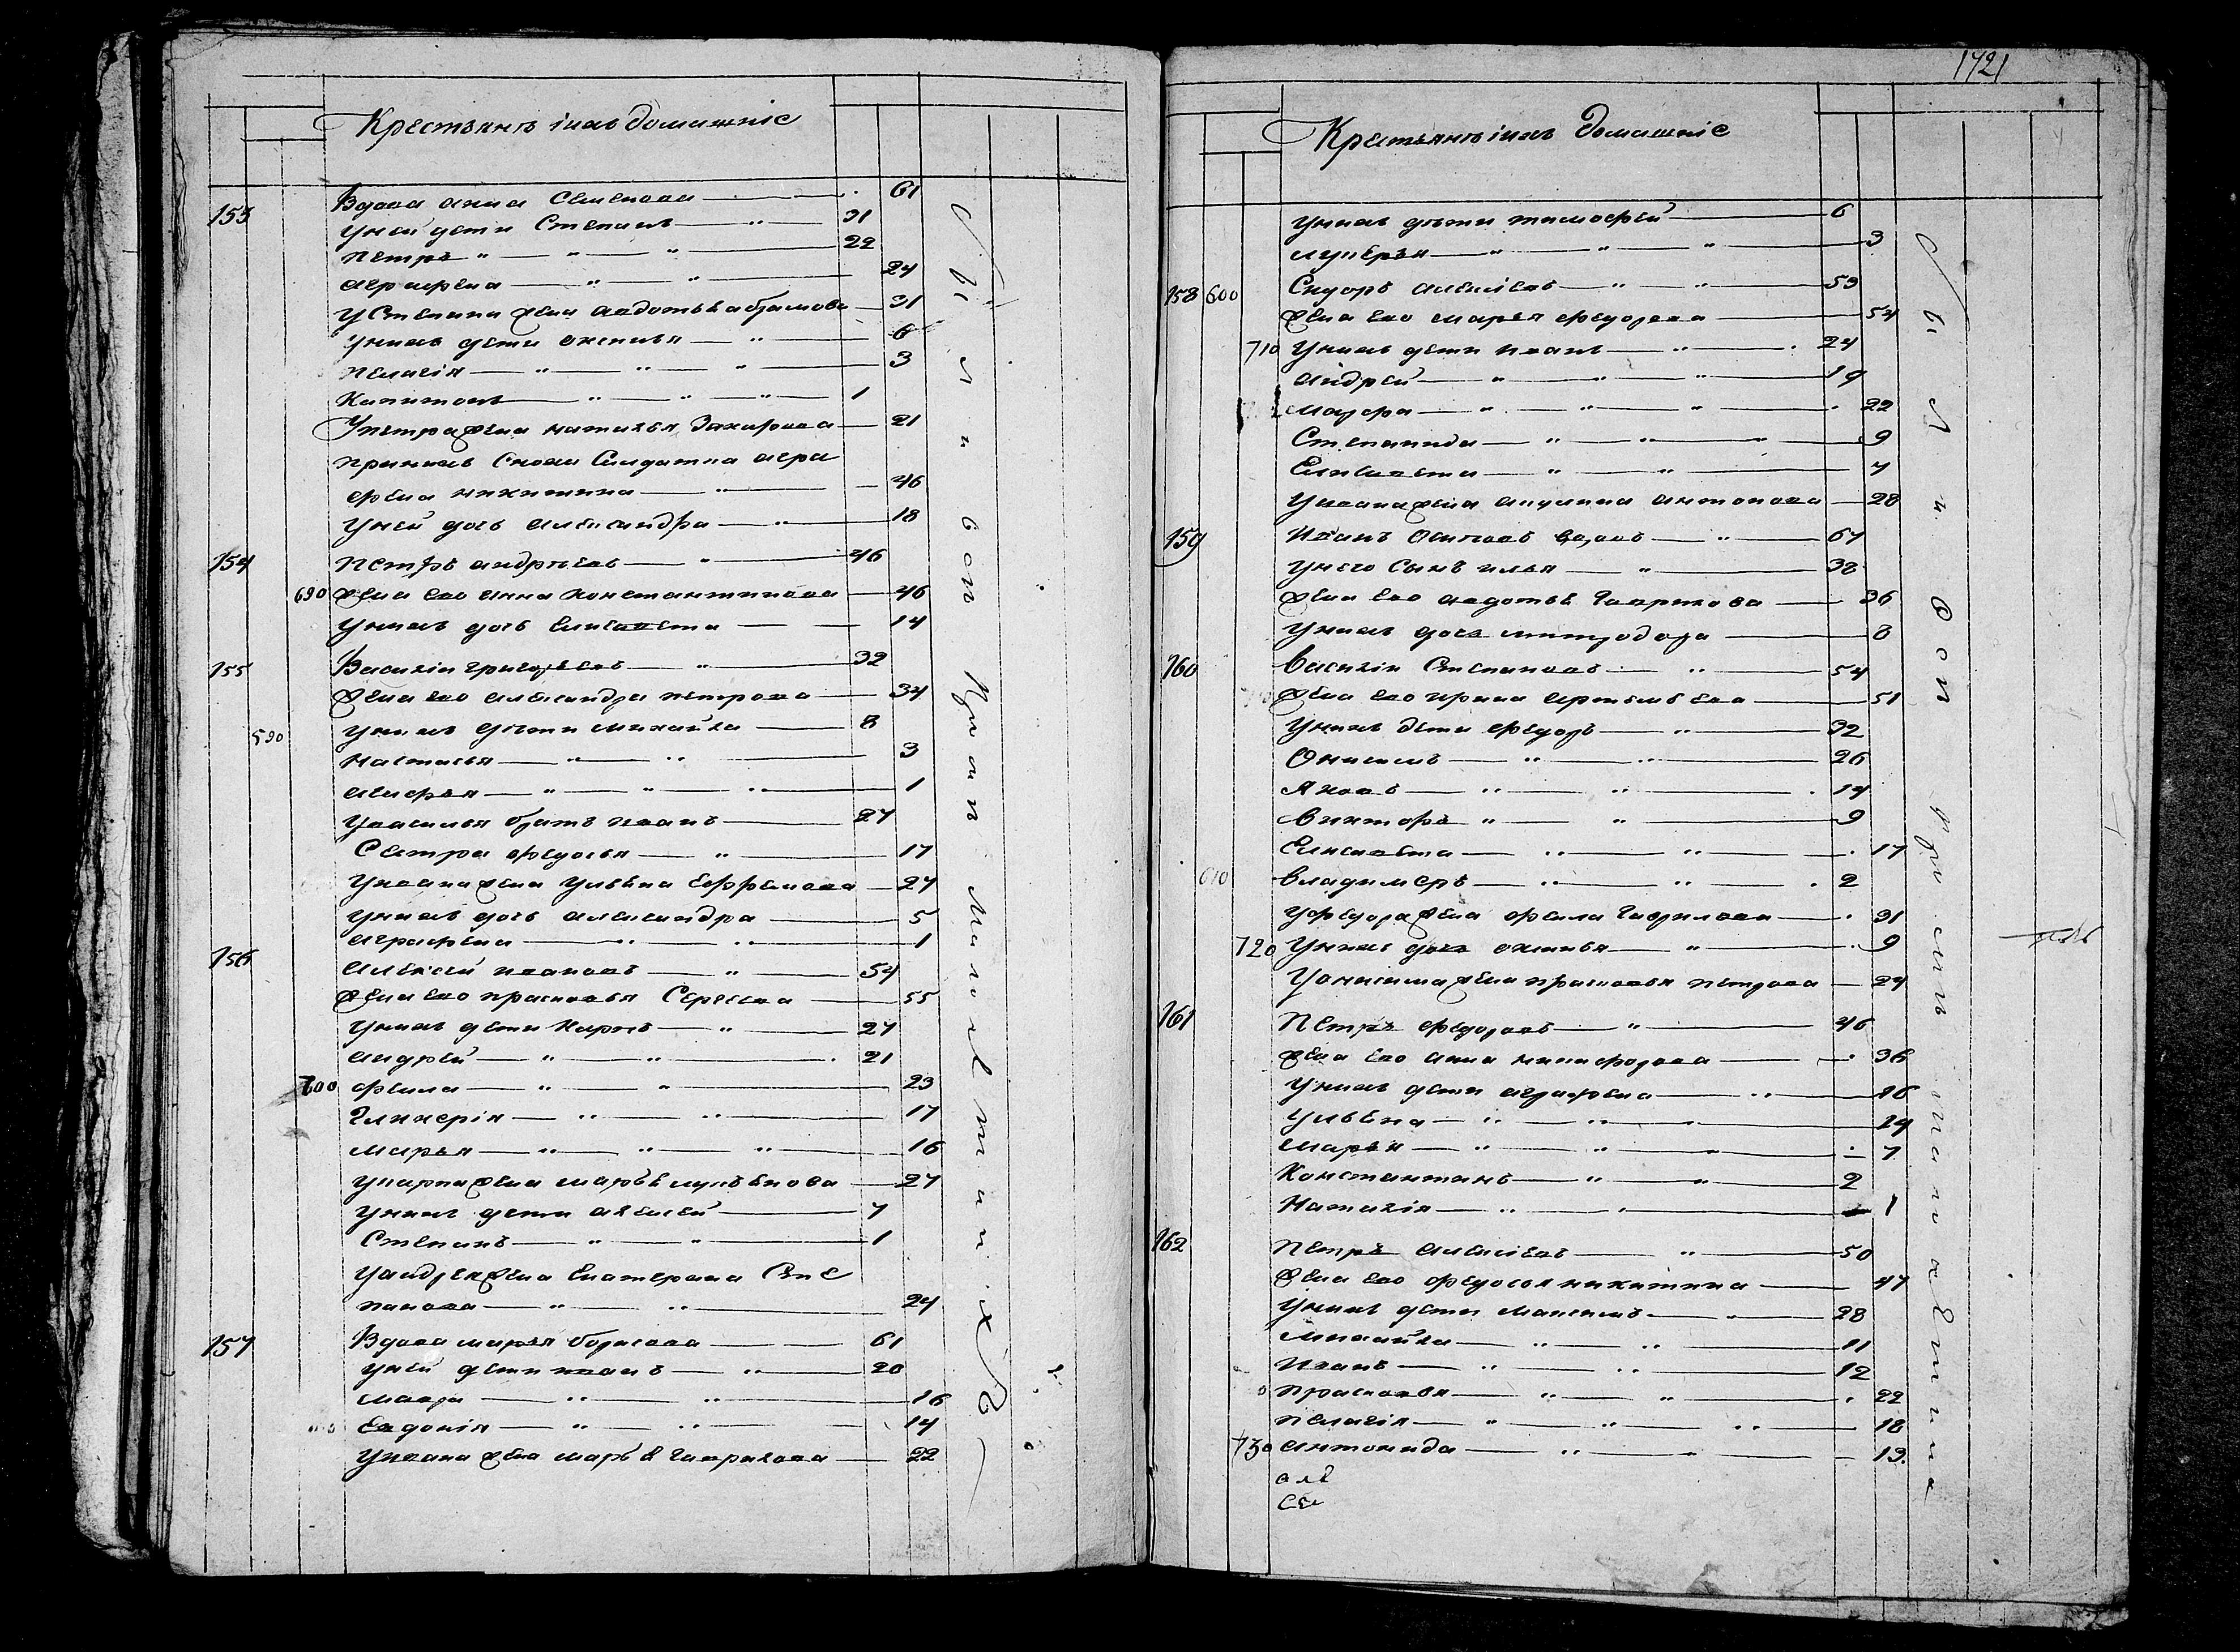 Крестьянѣ інхъ домашніе
153 Вдова анна Семенова 61
Уней дети Степанъ 31
Петръ 22
аграфена 24
УСтепана жена авдотья абрамова 31
Унихъ дети аксинья 6
Пелагія 3
Капитонъ 1
Упетра жена наталья Захарова 21
принихъ Сноха Салдатка агра
фена никитина 46
Уней дочь александра 18
154 Петръ андрѣевъ 46
690 жена ево анна константинова 46
Унихъ дочь Елисавета 14
155 Василіи григорьевъ 32
жена ево александра петрова 34
590 унихъ дѣти михайла 8
настасья 3
марфа 1
Увасилья братъ иванъ 27
Сестра федосья 17
Уивана жена Ульяна Ефремова 27
Унихъ дочь александра 5
аграфена 1
156 алексей ивановъ 54
жена ево прасковья Сергеева 55
Унихъ дети Карпъ 27
андрей 21
700 фекла 23
Гликерія 17
марья 16
укарпа жена марья лукьянова 27
Унихъ дети алексей 7
Степанъ 1
Уандрея жена Екатерина Сте
панова 24
157 Вдова марья борисова 61
Уней дети иванъ 20
мавра 16
Евдокія 14
Уивана жена марья гаврилова 22
Крестьянѣ інхъ домашніе
1721
Унихъ дѣти тимофей 6
лукерья 3
158 600 Сидоръ алексѣевъ 53
жена ево марья федорова 54
710 Унихъ дети иванъ 24
андрей 19
22
Степанида 9
Елисавета 7
Уивана жена акулина антонова 28
159 Иванъ Осиповъ вдовъ 67
Унего Сынъ илья 38
жена ево авдотья Гаврилова 36
Унихъ дочь митродора 8
160 Василіи Степановъ 54
жена ево ирина артемьева 51
Унихъ дети федоръ 32
Онисимъ 26
Яковъ 14
Викторъ 9
Елисавета 17
610 Владимеръ 2
Уфедора жена фекла Гаврилова 31
720 Унихъ дочь аксинья 9
Уонисима жена прасковья петрова 24
161 Петръ федоровъ 46
жена ево анна никифорова 36
Унихъ дети аграфена 16
Ульяна 14
марья 7
Константинъ 2
Наталія 1
162 Петръ алексѣевъ 50
жена ево федосья никитина 47
Унихъ дети максимъ 28
михайла 11
Иванъ 12
прасковья 22
пелагія 18
730 антонида 13